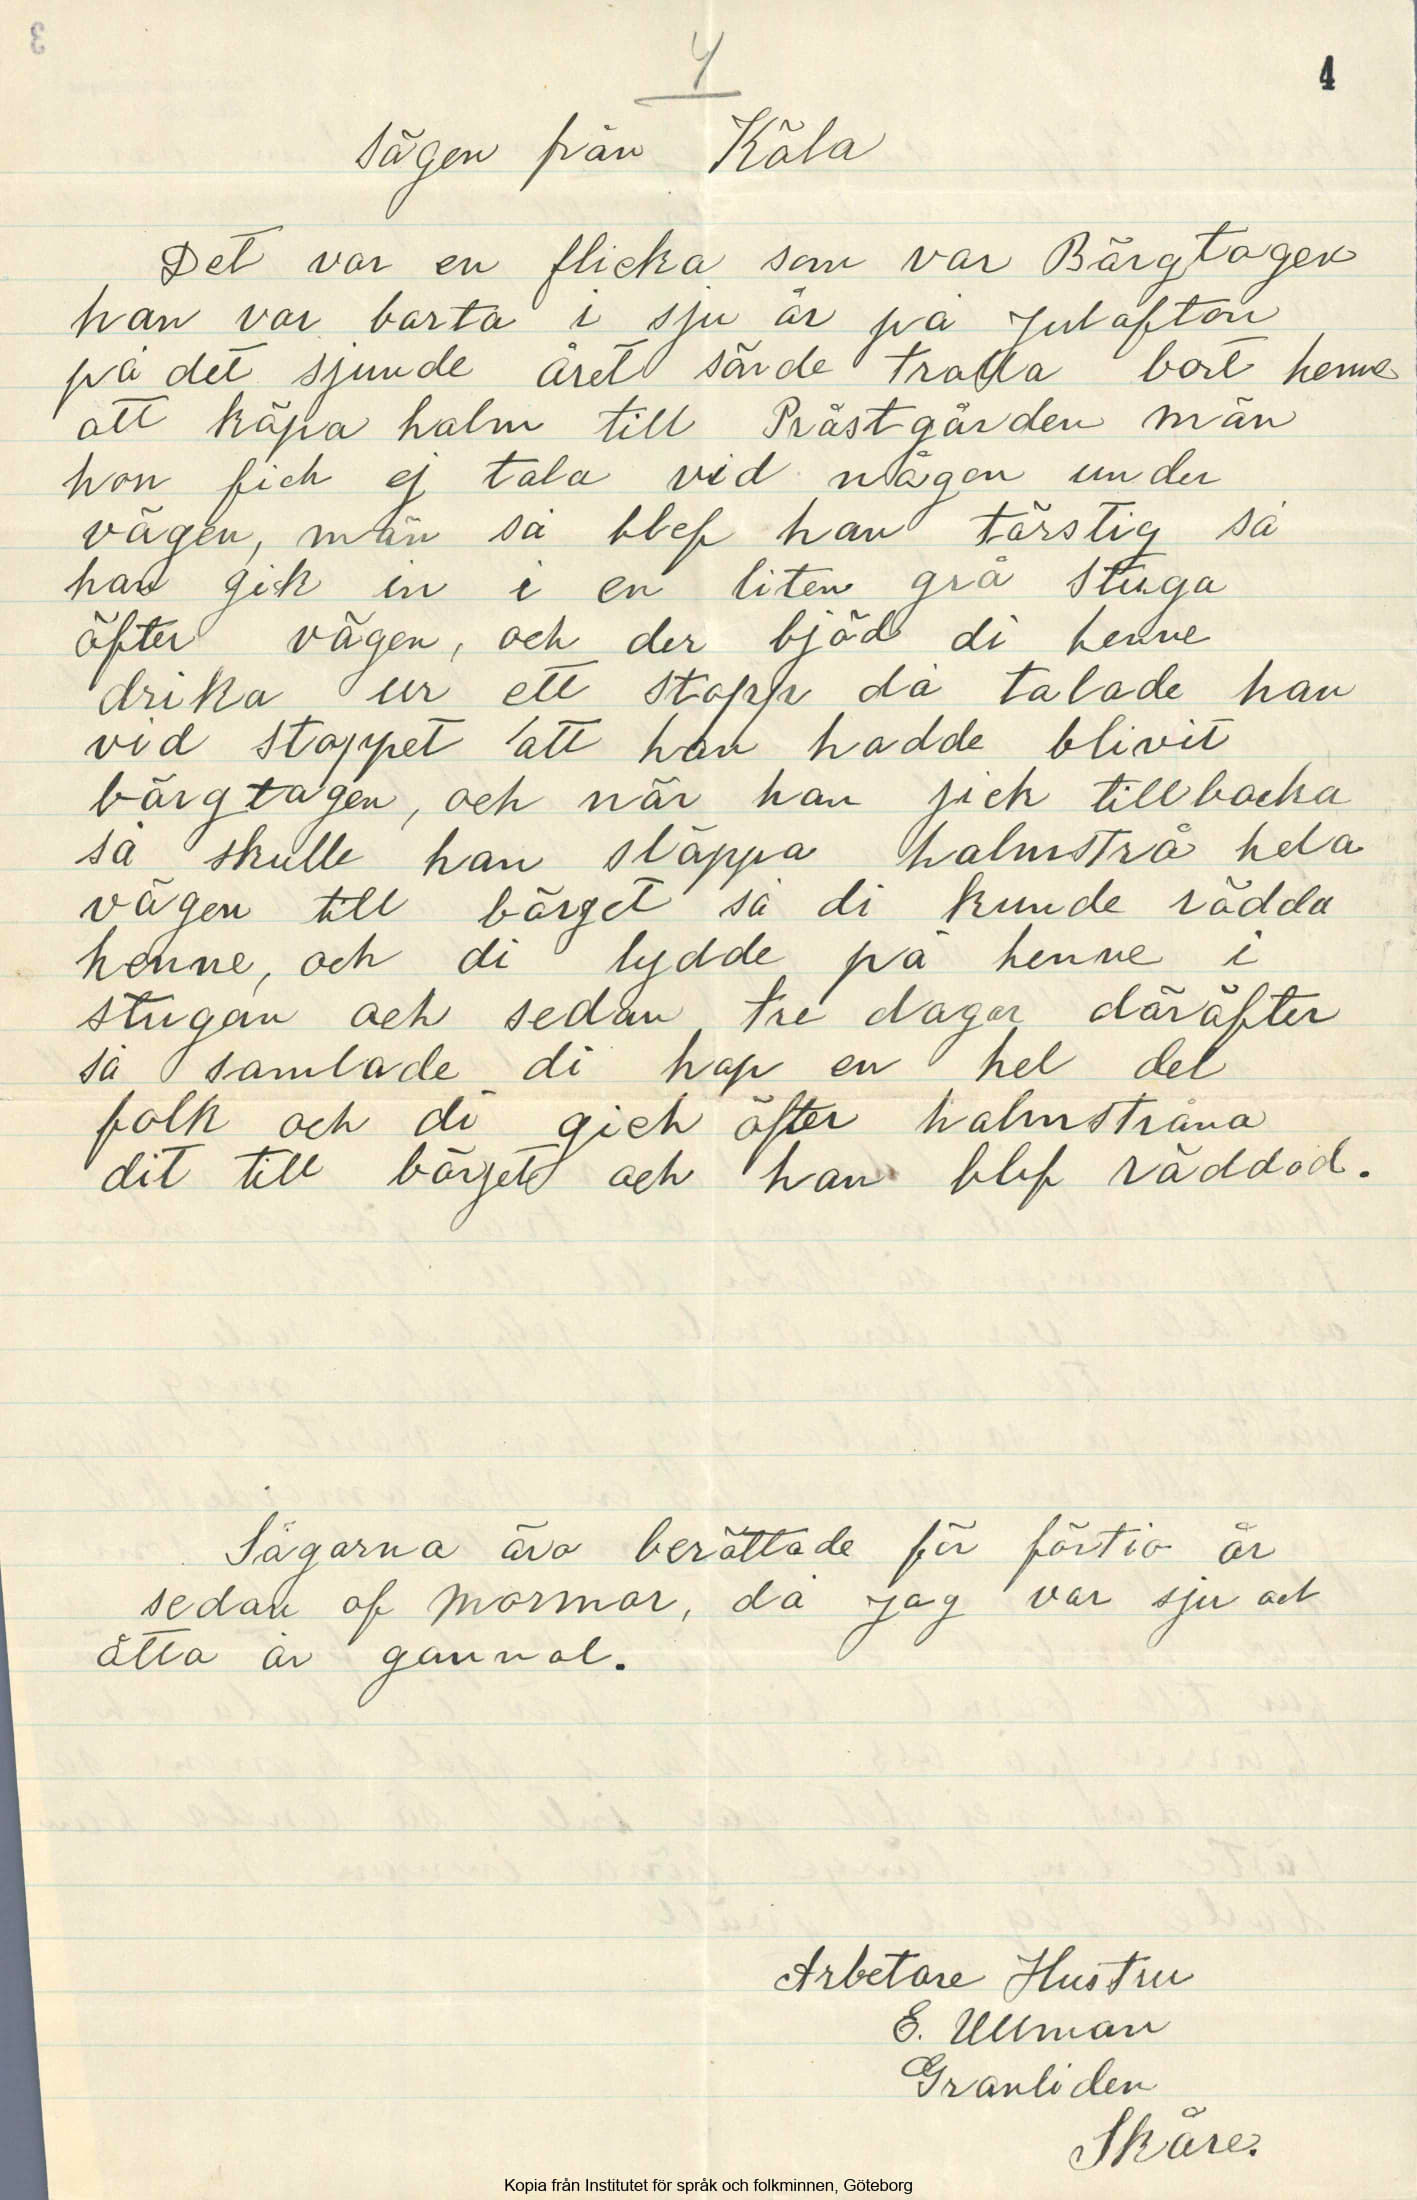 4
4
Sägen från Köla
Det var en flicka som var Bärgtagen
hon var borta i sju år på Julafton
på det sjunde året sände trolla bort henne
att köpa halm till Prästgården män
hon fick ej tala vid någon under
vägen, män så blef hon törstig så
hon gick in i en liten grå stuga
äfter vägen, och der bjöd di henne
drika ur ett stopp då talade hon
vid stoppet att hon hadde blivit
bärgtagen, och när hon jick tillbacka
så skulle hon släppa halmstrå hela
vägen till bärget så di kunde rädda
henne, och di lydde på henne i
stugan och sedan tre dagar däräfter
så samlade di hop en hel del
folk och di gick äfter halmstråna
dit till bärjet och hon blef räddad.
Sägarna äro berättade för förtio år
sedan af mormor, då jag var sju och
åtta år gammal.
Arbetare Hustru
E. Ullman
Granliden
Skåre.
Kopia från Institutet för språk och folkminnen, Göteborg